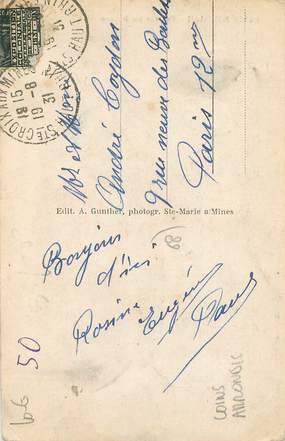 STE CROIX AUX MINES HAUT-RHIN
18 15
8-9
31
Mr et Mme
André Cogdon
9 rue neuve des Boulets
Paris 12me
Edit. A. Gunther, photogr. Ste-Marie a/Mines
Bonjour
d'ici
(68)
Rosine Eugène
Paul
50
COINS
ARRONDIS